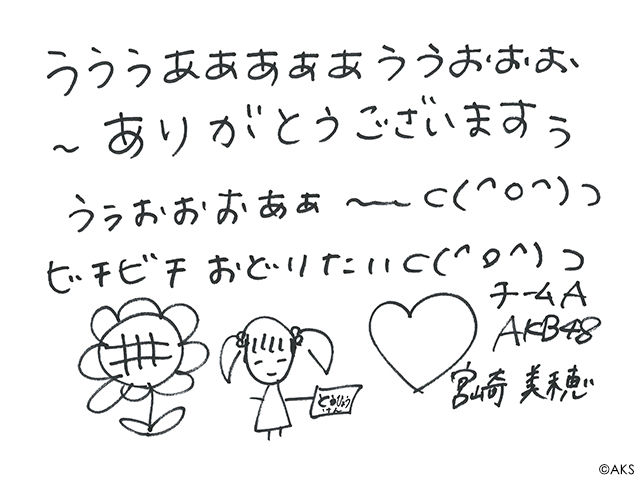 うううあああああううおおお
～ありがとうございますぅ
うぅおおおあぁ～⊂(^o^)⊃
ビチビチおどりたい⊂(^o^)⊃
チームA
AKB48
宮崎美穂
とうひょうけん
©AKS